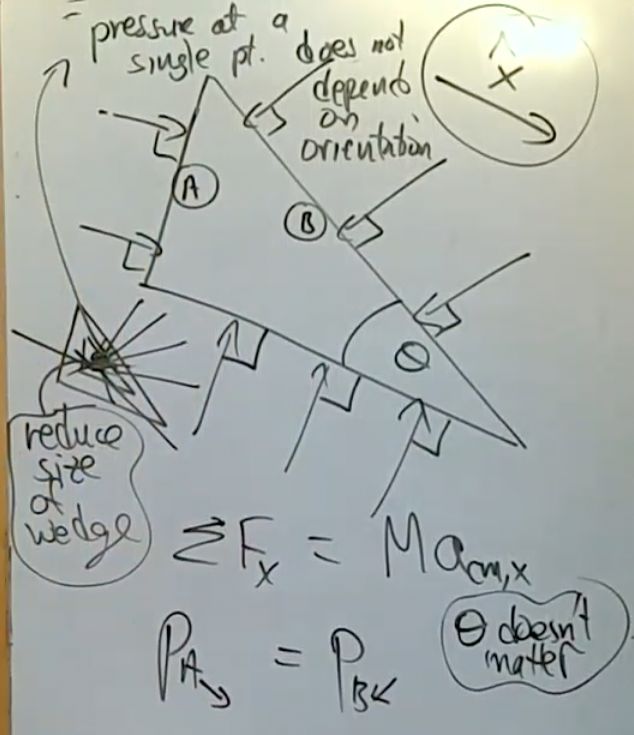 = pressure at a
single pt. does not
depend
on
orientation
x̂
A
B
θ
reduce
size
of
wedge
ΣFₓ = Ma_cm,x
P_A↘ = P_B↙
θ doesn't
matter